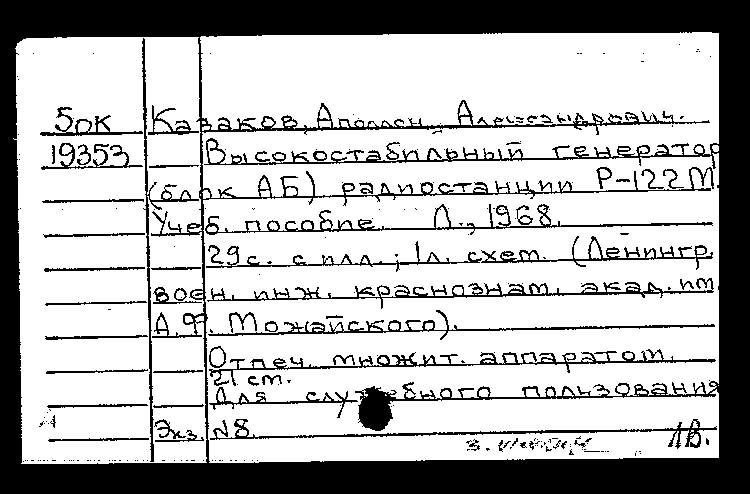 5ок Казаков, Аполлон Александрович.
19353 Высокостабильный генератор
(блок АБ) радиостанции Р-122М.
Учеб. пособие. Л., 1968.
29с. с илл.; 1л. схем. (Ленингр.
воен. инж. краснознам. акад. им.
А.Ф. Можайского).
Отпеч. множит. аппаратом.
21 ст.
Для служебного пользования
Экз. №8.
1В.